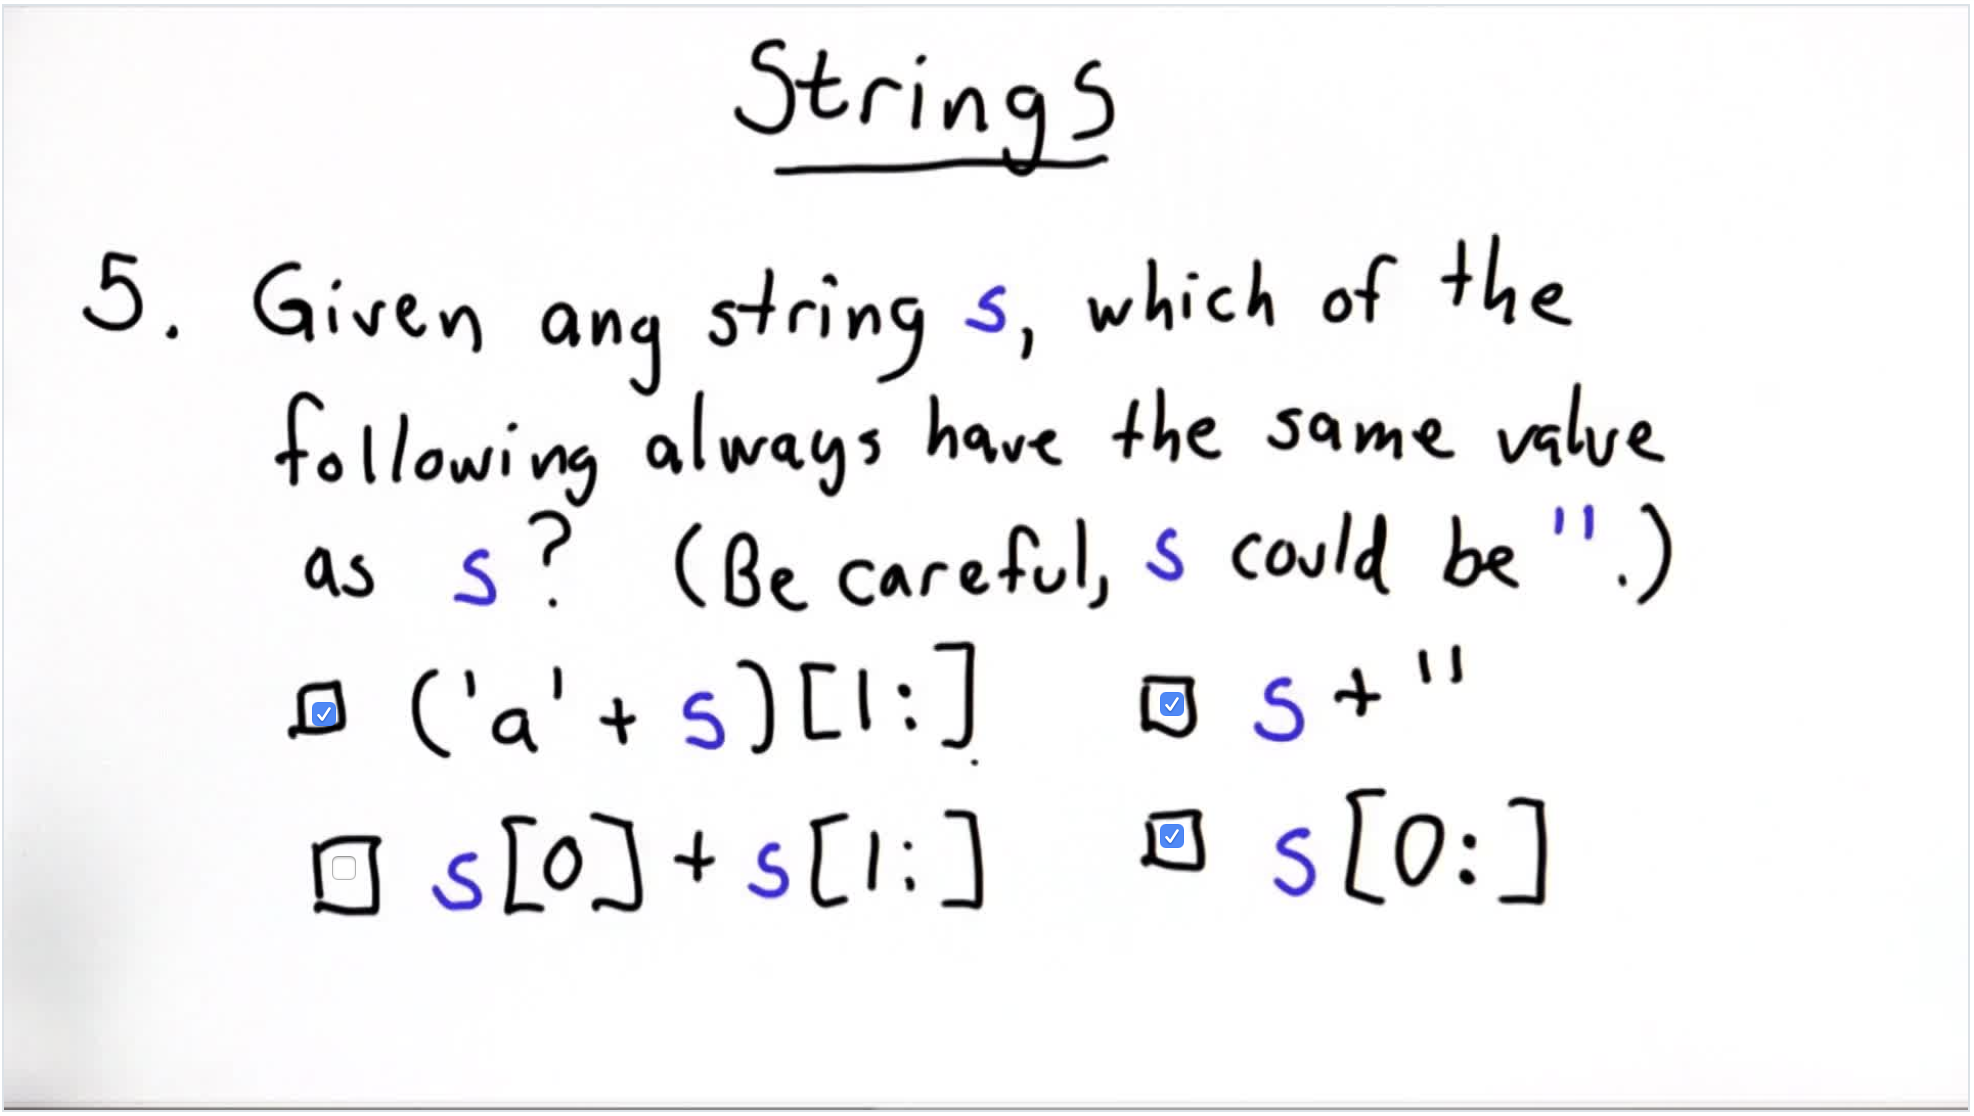 Strings
5. Given any string s, which of the
following always have the same value
as s? (Be careful, s could be ''.)
('a' + s)[1:]
s + ''
s[0] + s[1:]
s[0:]